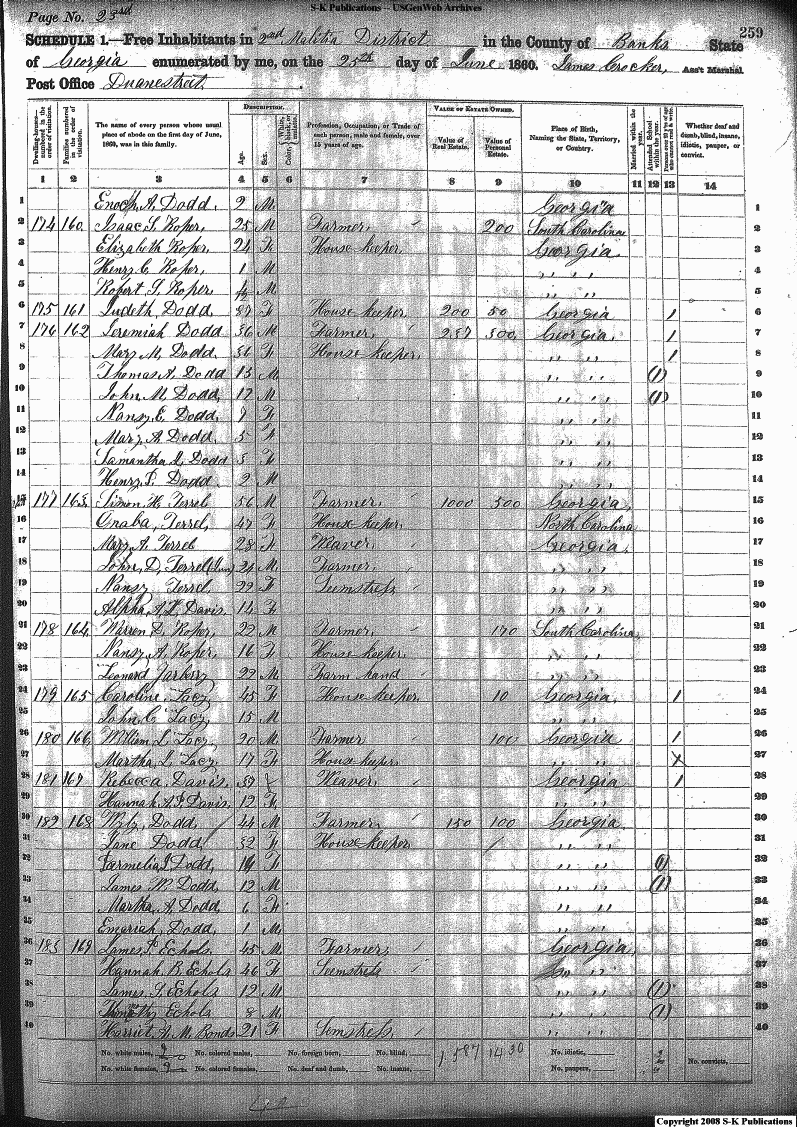 S-K Publications – USGenWeb Archives
Page No. 23rd
259
SCHEDULE 1.—Free Inhabitants in 2nd Militia District in the County of Banks State
of Georgia enumerated by me, on the 25th day of June 1860. James Crocker, Ass't Marshal
Post Office Duanestreet.
Dwelling-houses—numbered in the order of visitation.
Families numbered in the order of visitation.
The name of every person whose usual place of abode on the first day of June, 1860, was in this family.
DESCRIPTION.
Age.
Sex.
Color, White, black, or mulatto.
Profession, Occupation, or Trade of each person, male and female, over 15 years of age.
VALUE OF ESTATE OWNED.
Value of Real Estate.
Value of Personal Estate.
Place of Birth, Naming the State, Territory, or Country.
Married within the year.
Attended School within the year.
Whether deaf and dumb, blind, insane, idiotic, pauper, or convict.
1 2 3 4 5 6 7 8 9 10 11 12 13 14
1 Enoch A. Dodd 2 M Georgia 1
2 174 160 Isaac S. Roper, 25 M Farmer 200 South Carolina 2
3 Elizabeth Roper, 24 F House keeper Georgia 3
4 Henry C. Roper, 1 M " " 4
5 Robert T. Roper M " " 5
6 175 161 Judeth Dodd 87 F House keeper 200 50 Georgia 1 6
7 176 162 Jeremiah Dodd 36 M Farmer 237 300 Georgia 1 7
8 Mary M. Dodd 36 F House keeper " " 1 8
9 Thomas A. Dodd 13 M " " (1) 9
10 John M. Dodd 12 M " " (1) 10
11 Nansy E. Dodd 9 F " " 11
12 Mary A. Dodd 5 F " " 12
13 Samantha J. Dodd 3 F " " 13
14 Henry P. Dodd 2 M " " 14
15 177 163 Simon H. Terrel 56 M Farmer 1000 500 Georgia 15
16 Onaba, Terrel, 47 F House keeper North Carolina 16
17 Mary A. Terrel 28 F Weaver Georgia 17
18 John D. Terrel 24 M Farmer " " 18
19 Nansy Terrel 22 F Seemstress " " 19
20 Alpha A. Davis 14 F " " 20
21 178 164 Warren D. Roper, 22 M Farmer 170 South Carolina 21
22 Nansy A. Roper 16 F House keeper " " 22
23 Leonard 22 M Farm hand " " 23
24 179 165 Caroline Lacy 45 F House keeper 10 Georgia 1 24
25 John C Lacy, 15 M " " 25
26 180 166 William L. Lacy, 20 M Farmer 100 Georgia 1 26
27 Martha L. Lacy 17 F House keeper " " 27
28 181 167 Rebecca Davis 39 Weaver Georgia 1 28
29 Hannah A. Davis 12 F " " 29
30 182 168 Dodd 44 M Farmer 150 100 Georgia 30
31 Jane Dodd 32 F House keeper " " 31
32 Parmelia J. Dodd, 14 F " " (1) 32
33 James W. Dodd 12 M " " (1) 33
34 Martha A Dodd 6 F " " 34
35 Dodd 1 M " " 35
36 183 169 James P. Echols 45 M Farmer Georgia 36
37 Hannah B. Echols 46 F Seemstress " 37
38 James S. Echols 12 M " " (1) 38
39 Timothy Echols 8 M " " (1) 39
40 Harriet A. M. Bonds 21 F Semstress " " 40
No. white males, No. colored males, No. foreign born, No. blind, 1.587 1430 No. idiotic, No. convicts,
No. white females, No. colored females, No. deaf and dumb, No. insane, No. paupers,
Copyright 2008 S-K Publications